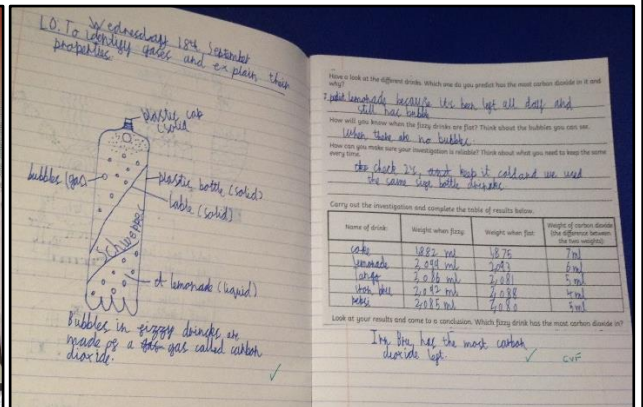 Wednesday 18th September
L.O. To identify gases and explain their
properties.
plastic cap
(solid)
bubbles (gas)
plastic bottle (solid)
lable (solid)
Schweppes
lemonade (liquid)
Bubbles in fizzy drinks are
made of a gas called carbon
dioxide.
Have a look at the different drinks. Which one do you predict has the most carbon dioxide in it and
why?
lemonade because it's been left all day and
still has bubbles
How will you know when the fizzy drinks are flat? Think about the bubbles you can see.
When there are no bubbles.
How can you make sure your investigation is reliable? Think about what you need to keep the same
every time.
check it's and keep it cold and we used
the same size bottle
Carry out the investigation and complete the table of results below.
Name of drink Weight when fizzy Weight when flat Weight of carbon dioxide
(the difference between
the two weights)
coke 1,882 ml 1,875 7ml
lemonade 2,099 ml 2,093 6ml
tango 2,086 ml 2,081 5ml
Iron bru 2,092 ml 2,088 4ml
Pepsi 2,085 ml 2,080 5ml
Look at your results and come to a conclusion. Which fizzy drink has the most carbon dioxide in?
Irn Bru has the most carbon
dioxide left.